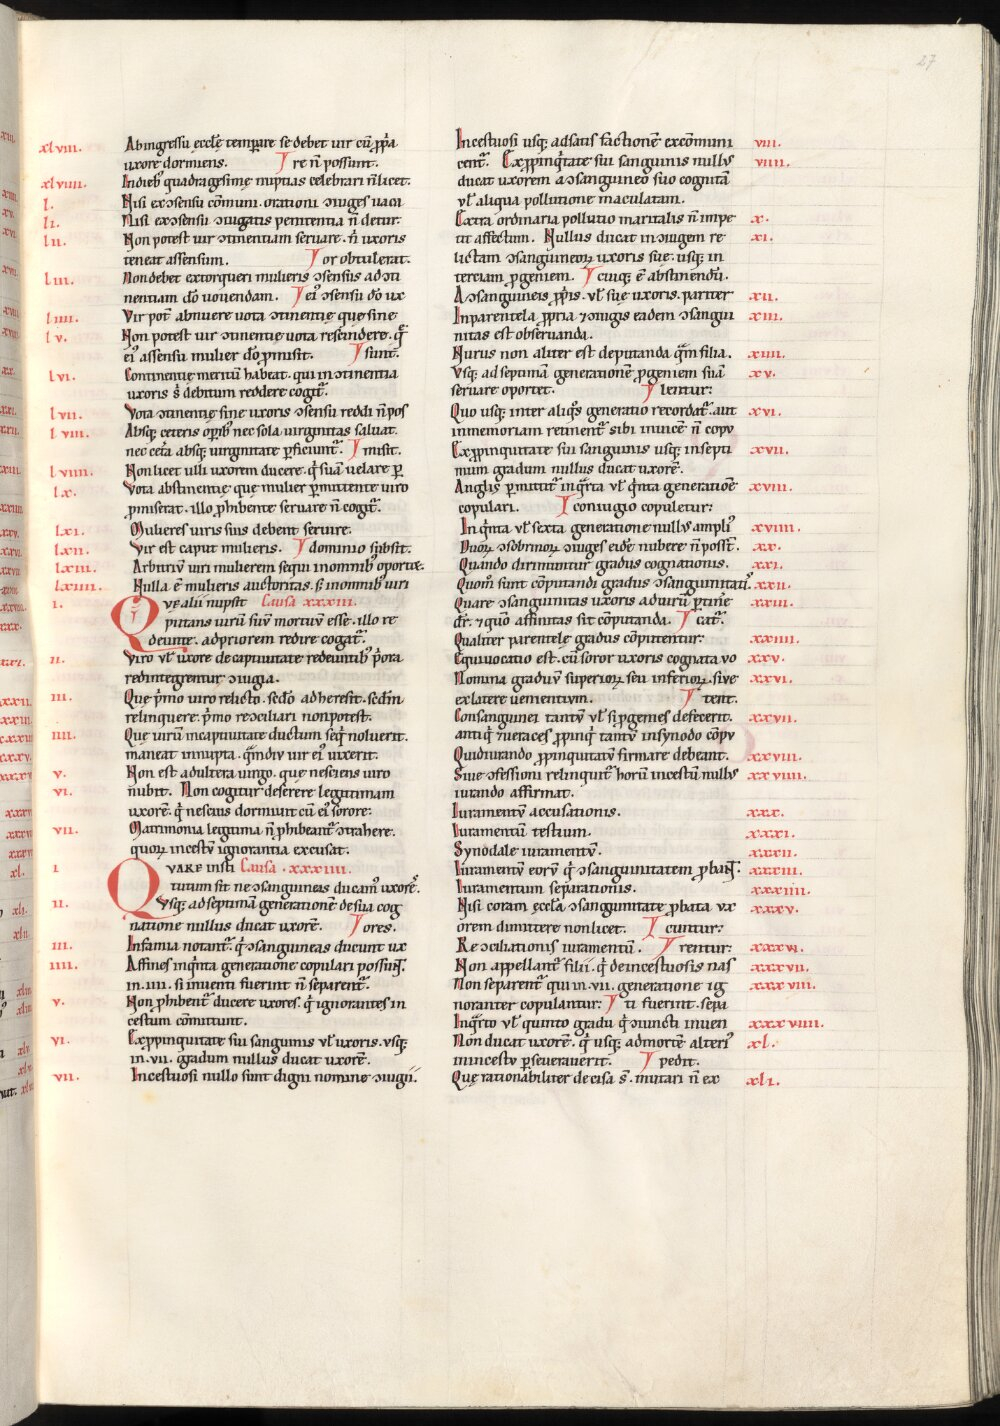 27
xlviii. Ab ingressu eccłe temperare se debet uir cũ ꝓpa
uxore dormiens. re ñ possunt.
xlviiii. In dieb; quadragesime nuptias celebrari ñ licet.
l. Nisi ex ɔsensu cõmuni orationi ɔiuges uaca
li. Nisi ex ɔsensu ɔiugatis penitentia ñ detur.
lii. Non potest uir ɔtinentiam seruare. ñ uxoris
teneat assensum. or obtulerat.
liii. Non debet extorqueri mulieris ɔsensus ad ɔti
nentiam dõ uouendam. ei' ɔsensu dõ ux
liiii. Vir pot abnuere uota ɔtinentie que sine
lv. Non potest uir ɔtinentie uota rescindere. q
ei' assensu mulier dõ ꝓmisit. sunt.
lvi. Continentie meritũ habeat. qui in ɔtinentia
uxoris s debitum reddere cogit.
lvii. Vota ɔtinentie sine uxoris ɔsensu reddi ñ pos
lviii. Absq; ceteris opib; nec sola uirginitas saluat.
nec cetera absq; uirginitate ꝑficiunt. misit.
lviiii. Non licet ulli uxorem ducere. q suã uelare ꝑ
lx. Vota abstinentie que mulier ꝑmittente uiro
ꝓmiserat. illo ꝓhibente seruare ñ cogit.
lxi. Mulieres uiris suis debent seruire.
lxii. Vir est caput mulieris. dominio subsit.
lxiii. Arbitriũ uiri mulierem sequi in omnib; oportue.
lxiiii. Nulla ẽ mulieris auctoritas. s; in omnib; uiri
i. Qvę alii nupsit Causa xxxiii.
putans uirũ suũ mortuũ esse. illo re
deunte. ad priorem redire cogat.
ii. Viro uł uxore de captiuitate redeuntib; pora
redintegrentur ɔiugia.
iii. Que pmo uiro relicto. sedo adheresit. sedm
relinquere. pmo reɔciliari non potest.
iiii. Que uirũ in captiuitate ductum seq noluerit.
maneat innupta. qmdiu uir ei' uixerit.
v. Non est adultera uirgo. que nesciens uiro
vi. nubit. Non cogitur deserere legitimam
uxorẽ. q nescius dormiuit cũ ei' sorore.
vii. Matrimonia legitima ñ ꝓhibeant ɔtrahere.
quoꝝ incestũ ignorantia excusat.
i Qvare insti Causa. xxxiiii.
tutum sit ne ɔsanguineas ducam' uxorẽ.
ii. Vsq; ad septimam generationẽ de sua cog
natione nullus ducat uxorẽ. ores.
iii. Infamia notant. q ɔsanguineas ducunt ux
iiii. Affines in qnta generatione copulari possunt.
in. iiii. si inuenti fuerint ñ separent.
v. Non ꝓhibent ducere uxores. q ignorantes in
cestum cõmittunt.
vi. Ex ꝓpinquitate sui sanguinis uł uxoris. usq;
in. vii. gradum nullus ducat uxorẽ.
vii. Incestuosi nullo sunt digni nomine ɔiugii.
Incestuosi usq; ad satisfactionẽ excõmuni viii.
cent. Ex ꝓpinqtate sui sanguinis nullus viiii.
ducat uxorem a ɔsanguineo suo cognitã
uł aliqua pollutione maculatam.
Extra ordinaria pollutio maritalis ñ impe x.
tit affectum. Nullus ducat in ɔiugem re xi.
lictam ɔsanguineoꝝ uxoris sue. usq; in
terciam ꝓgeniem. cuiq; ẽ abstinendũ.
A ɔsanguineis ꝓpis. uł sue uxoris. pariter xii.
In parentela ꝓpria ⁊ ɔiugis eadem ɔsangui xiii.
nitas est obseruanda.
Nurus non aliter est deputanda qm filia. xiiii.
Vsq; ad septimã generationẽ ꝓgeniem suã xv.
seruare oportet. lentur:
Quo usq; inter aliqs generatio recordat. aut xvi.
in memoriam retinent sibi inuicẽ ñ copu
Ex ꝓpinquitate sui sanguinis usq; in septi xvii.
mum gradum nullus ducat uxorẽ.
Anglis ꝑmittit in qrta uł qnta generationẽ xviii.
copulari. coniugio copuletur:
In qnta uł sexta generatione nullus ampli' xviiii.
Duoꝝ ɔsobrinoꝝ ɔiuges eidẽ nubere ñ posst. xx.
Quando dirimuntur gradus cognationis. xxi.
Quom sunt cõputandi gradus ɔsanguinitatũ. xxii.
Quare ɔsanguinitas uxoris ad uirũ ptine xxiii.
dr: ⁊ quõ affinitas sit cõputanda. cat.
Qualiter parentele gradus cõputentur: xxiiii.
Equiuocatio est. cũ soror uxoris cognata uo xxv.
Nomina graduũ superioꝝ. seu inferioꝝ. siue xxvi.
ex latere uenientium. tent.
Consanguinei tantũ uł si ꝓgenies defecerit. xxvii.
antiq ⁊ ueraces ꝓpinq tantũ in synodo cõpu
Qui diurando ꝓpinquitatũ firmare debeant. xxviii.
Siue ɔfessioni relinquit horũ incestũ nullus xxviiii.
iurando affirmat.
Iuramentũ accusationis. xxx.
Iuramentũ testium. xxxi.
Synodale iuramentũ. xxxii.
Iuramentũ eorũ q ɔsanguinitatem ꝓbant. xxxiii.
Iuramentum separationis. xxxiiii.
Nisi coram ecclã ɔsanguinitate ꝓbata ux xxxv.
orem dimittere non licet. cuntur:
Reɔciliationis iuramentũ. rentur: xxxvi.
Non appellant filii. q de incestuosis nas xxxvii.
Non separent qui in. vii. generatione ig xxxviii.
noranter copulantur: ti fuerint. sepa
In qrto uł quinto gradu q ɔiuncti inuen xxxviiii.
Non ducat uxorẽ. q usq; ad mortẽ alteri' xl.
in incestu ꝑseuerauerit. pedit.
Que rationabiliter decisa s. mutari ñ ex xli.